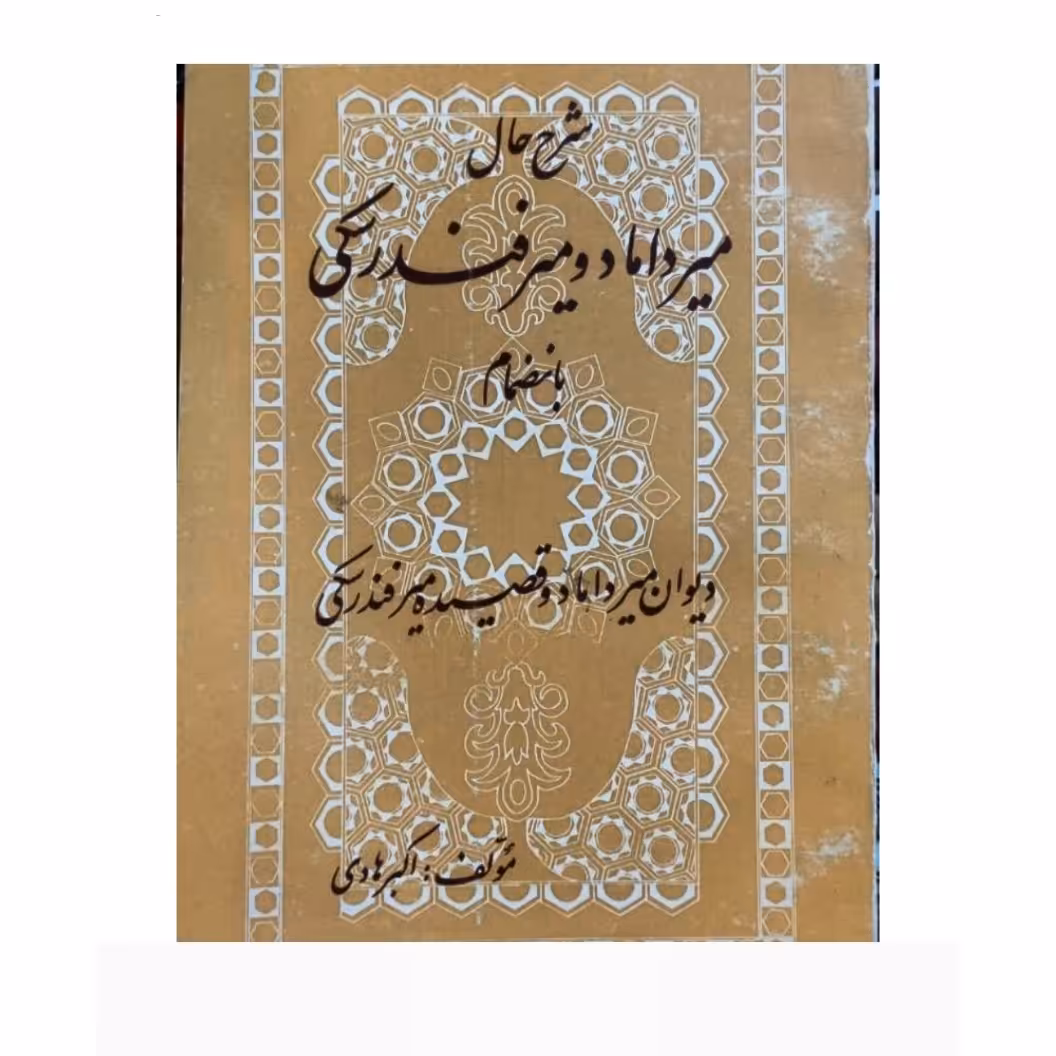 شرح حال
میرداماد و میرفندرسکی
بانضمام
دیوان میرداماد و قصیده میرفندرسکی
مؤلف: اکبر هادی